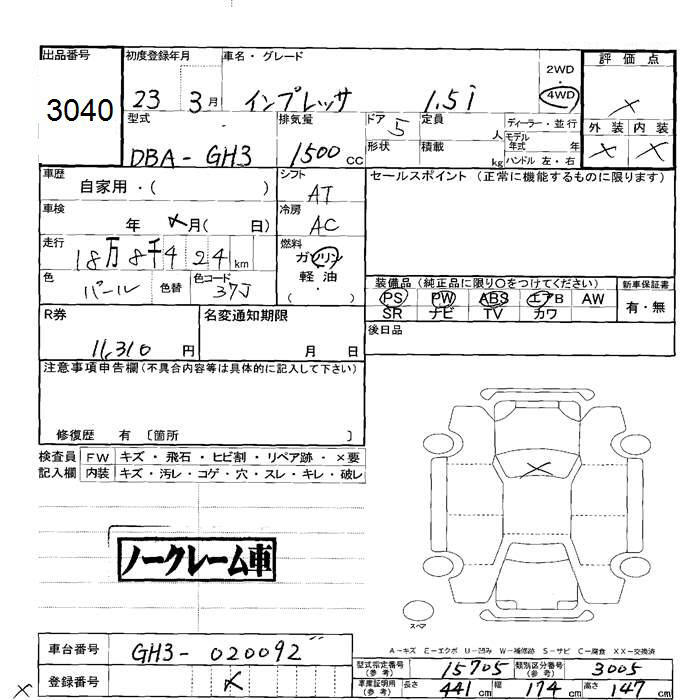 出品番号 初度登録年月 車名・グレード 2WD ・ 4WD 評価点
3040 23 3月 インプレッサ 1.5i ×
型式 排気量 ドア 定員 ディーラー・並行 外装 内装
DBA-GH3 1500cc 5 人 モデル年式 年 × ×
形状 積載 kg ハンドル 左・右
車歴 シフト セールスポイント (正常に機能するものに限ります)
自家用・( ) AT
車検 冷房
年 ×月( 日) AC
走行 燃料
18万8千424km ガソリン
軽油
( ・ )
色 色替 色コード
パール 37J
装備品(純正品に限り○をつけてください) 新車保証書
PS PW ABS エアB AW 有・無
SR ナビ TV カワ
R券 名変通知期限 後日品
11,310円 月 日
注意事項申告欄(不具合内容等は具体的に記入して下さい)
修復歴 有 〔箇所 〕
検査員 FW キズ・飛石・ヒビ割・リペア跡・×要
記入欄 内装 キズ・汚レ・コゲ・穴・スレ・キレ・破レ
×
ノークレーム車
スペア
A-キズ E-エクボ U-凹み W-補修跡 S-サビ C-腐食 XX-交換済
車台番号 GH3-020092
登録番号 ×
型式指定番号(参考) 15705 類別区分番号(参考) 3005
車庫証明用(参考) 長さ 441cm 幅 174cm 高さ 147cm
×